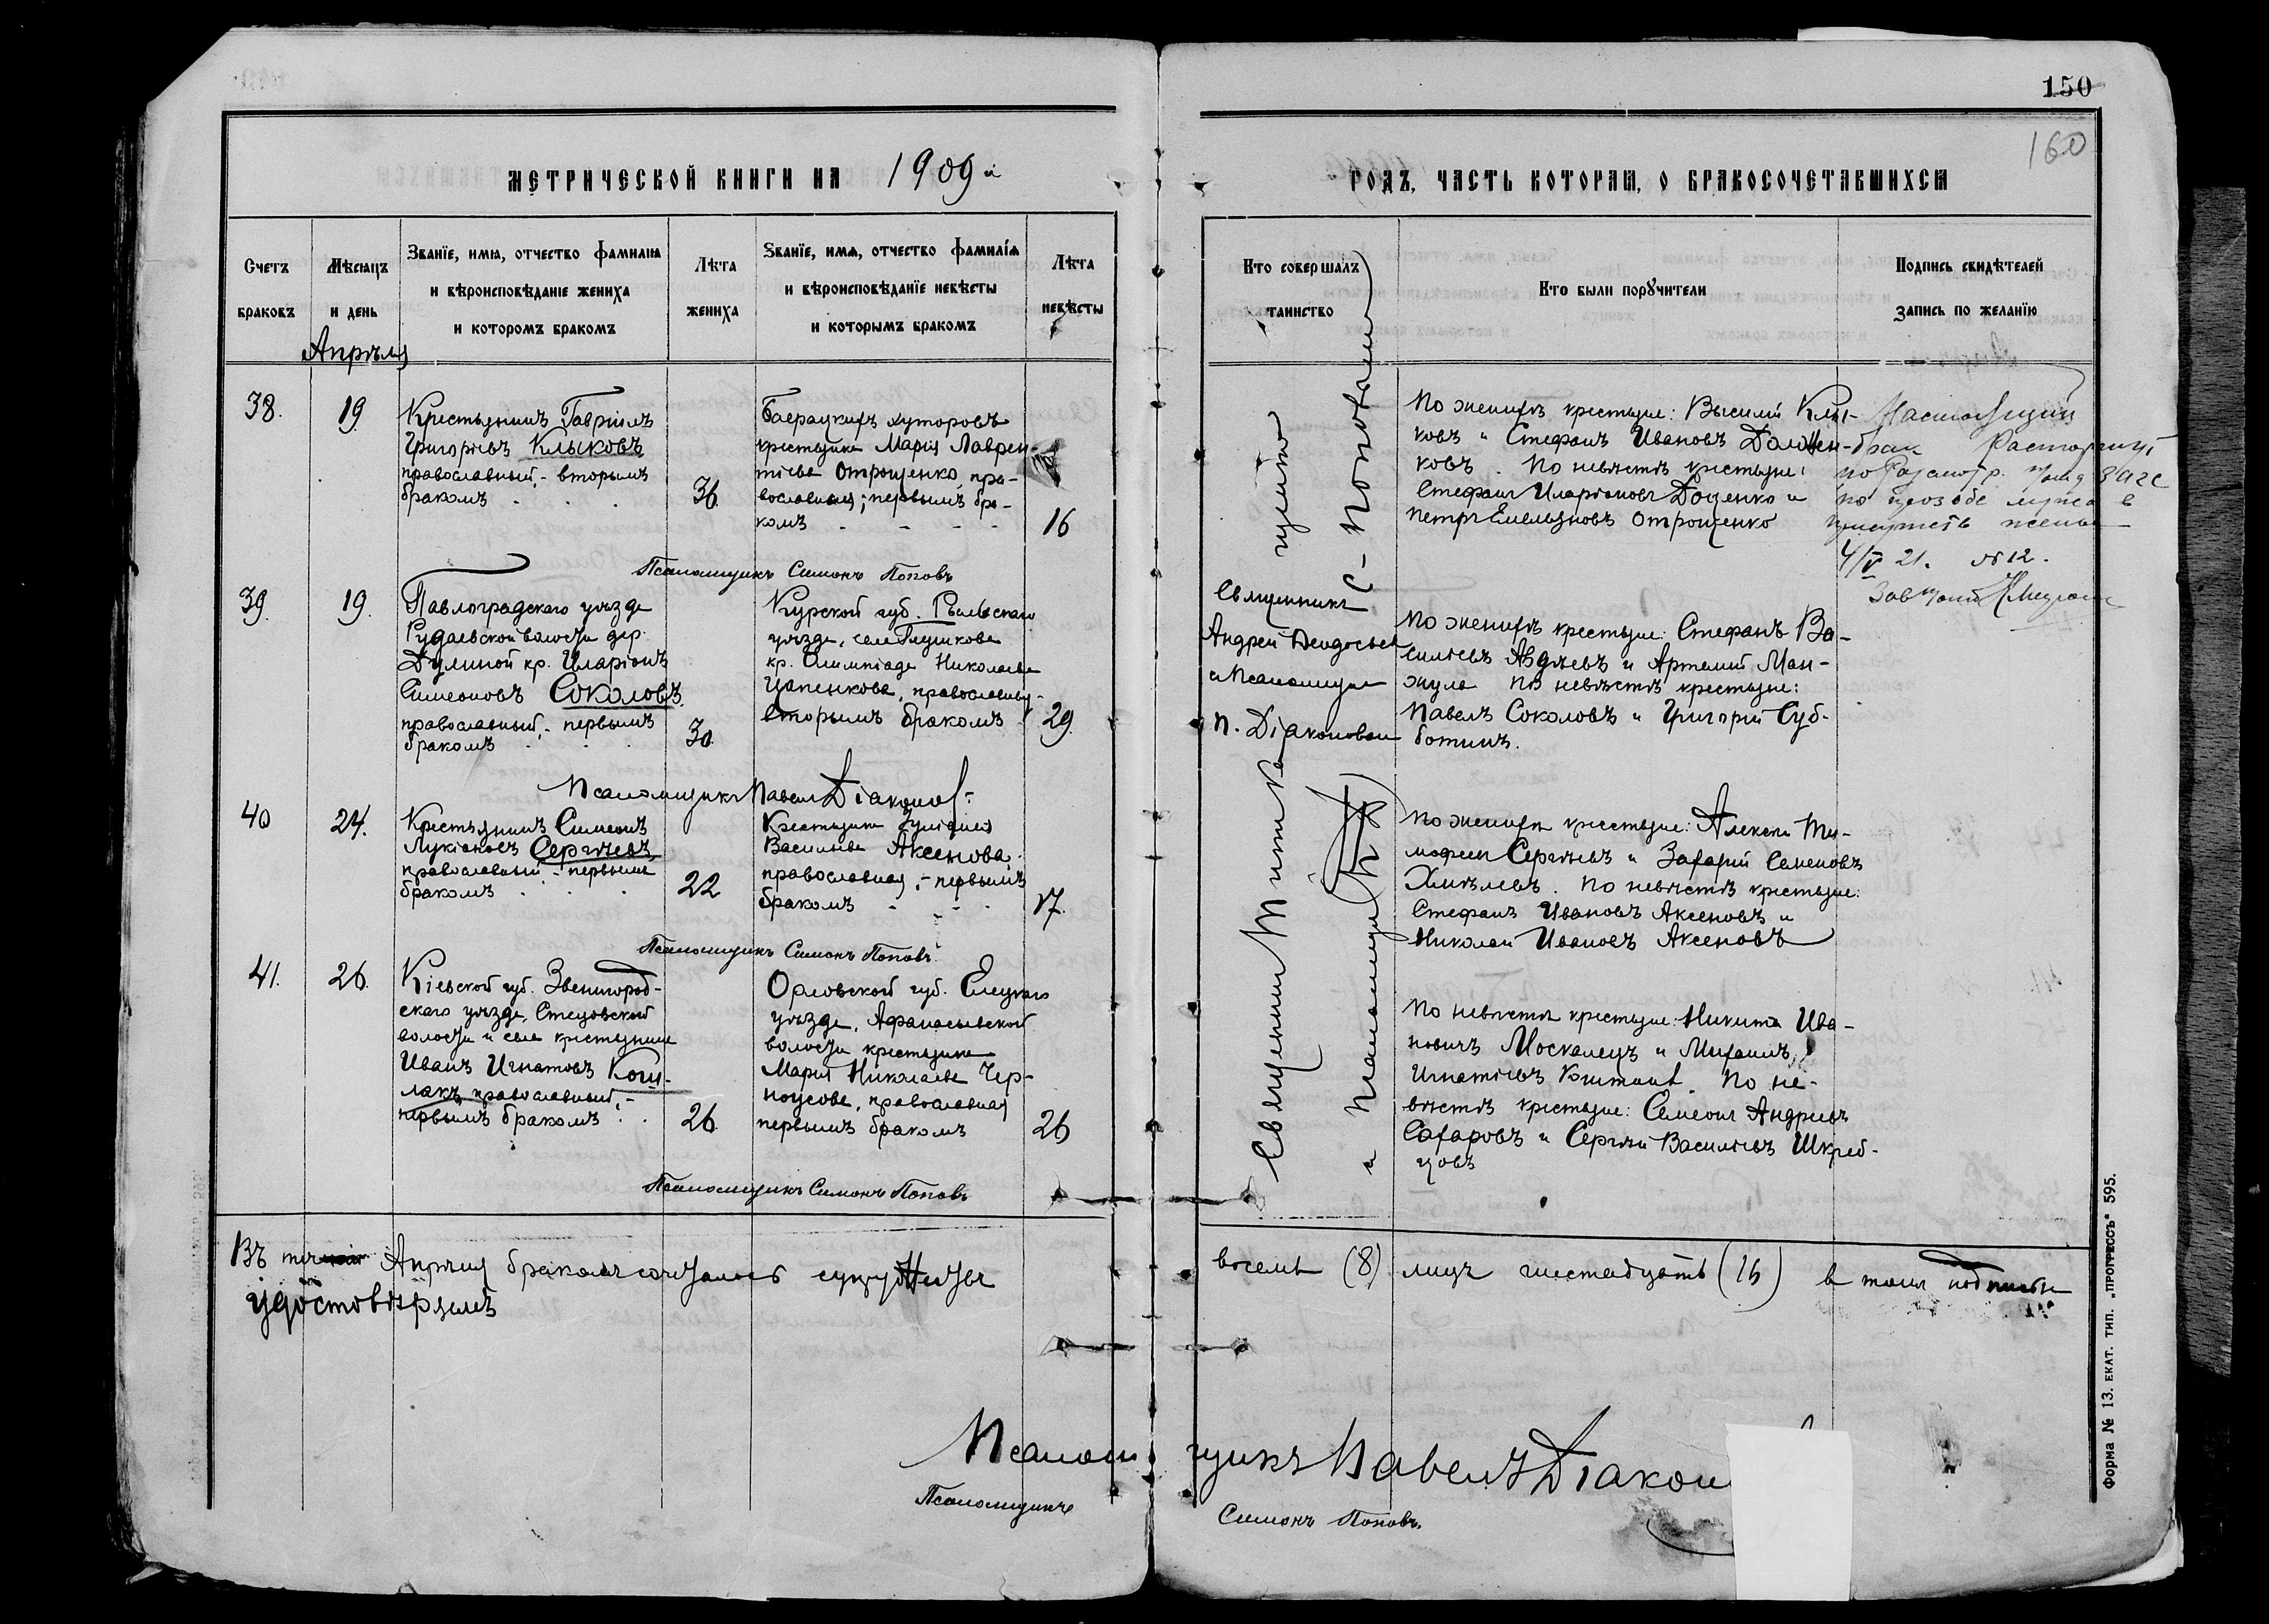 150
160
МЕТРИЧЕСКОЙ КНИГИ НА 1909 й
ГОДЪ, ЧАСТЬ КОТОРАЯ, О БРАКОСОЧЕТАВШИХСЯ
Счетъ браковъ
Мѣсяцъ и день
Званїе, имя, отчество фамилія и вѣроисповѣданіе жениха и которомъ бракомъ
Лѣта жениха
Званїе, имя, отчество фамилія и вѣроисповѣданїе невѣсты и которымъ бракомъ
Лѣта невѣсты
Кто совершалъ таинство
Кто были порꙋчители
Подпись свидѣтелей запись по желанїю
Апрѣля
38.
19
Крестьянинъ Гавріилъ
Григоріевъ Клыковъ
православный, - вторымъ
бракомъ
36.
Баерацкихъ хуторовъ
крестьянка Марія Лаврен-
тіева Отрощенко, пра-
вославная; первымъ бра-
комъ
16
По женихѣ крестьяне: Василій Клы-
ковъ и Стефанъ Ивановъ Должен-
ковъ. По невѣстѣ крестьяне:
Стефанъ Иларіоновъ Доценко и
Петръ Емельяновъ Отрощенко
Настоящий
брак
4/V 21. № 12.
Псаломщикъ Симонъ Поповъ
39.
19.
Павлоградскаго уѣзда
волости дер.
кр. Иларіонъ
Симеоновъ Соколовъ,
православный, - первымъ
бракомъ
30
Курской губ. Рыльскаго
уѣзда, села Глушкова
кр. Олимпіада Николаева
Цапенкова, православная,
вторымъ бракомъ
29.
Священникъ
Андрей
и Псаломщик
П. Діаконовъ
По женихѣ крестьяне: Стефанъ Ва-
силіевъ Авдѣевъ и Артемій Ман-
жула По невѣстѣ крестьяне:
Павелъ Соколовъ и Григорій Суб-
ботинъ.
Псаломщикъ Павелъ Діаконовъ
40
24.
Крестьянинъ Симеонъ
Лукіановъ Сергѣевъ,
православный - первымъ
бракомъ
22
Крестьянка
Васильева Аксенова,
православная, - первымъ
бракомъ
17.
По женихѣ крестьяне: Алексѣй Ти-
мофеев Сергѣевъ и Захарій Семеновъ
Хмѣлевъ. По невѣстѣ крестьяне:
Стефанъ Ивановъ Аксеновъ и
Николай Ивановъ Аксеновъ
Псаломщикъ Симонъ Поповъ.
41.
26.
Кіевской губ. Звенигород-
скаго уѣзда, Стецовской
волости и села крестьянинъ
Иванъ Игнатовъ
православный, -
первымъ бракомъ
26.
Орловской губ. Елецкаго
уѣзда, Афанасьевской
волости крестьянка
Марія Николаева Чер-
ноусова, православная
первымъ бракомъ
26
По невѣстѣ крестьяне: Никита Ива-
новичъ Москалецъ и Михаилъ
Игнатіевъ По не-
вѣстѣ крестьяне: Симеонъ Андреевъ
Сахаровъ и Сергѣй Василіевъ Шкреб-
цовъ
Псаломщикъ Симонъ Поповъ
Священник
и Псаломщик С. Поповым
Въ Апрѣля бракомъ сочеталось
восемь (8) лицъ шестнадцать (16) в томъ подписью
удостовѣряемъ
Псаломщикъ Павелъ Діакон
Псаломщикъ
Симонъ Поповъ.
Форма № 13. ЕКАТ. ТИП. „ПРОГРЕССЪ" 595.